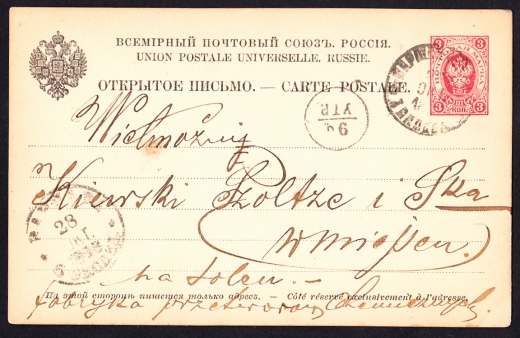 ВСЕМІРНЫЙ ПОЧТОВЫЙ СОЮЗЪ. РОССІЯ.
UNION POSTALE UNIVERSELLE. RUSSIE.
ОТКРЫТОЕ ПИСЬМО. — CARTE POSTALE.
3 3
3 КОП. 3
9 Ч.
УТР.
Wielmożny
Kijewski Szoltze i Ska
w miejscu.
28
na Solcu –
На этой сторонѣ пишется только адресъ. — Côté réservé exclusivement à l'adresse.
fabryka przetworów Chemicznych